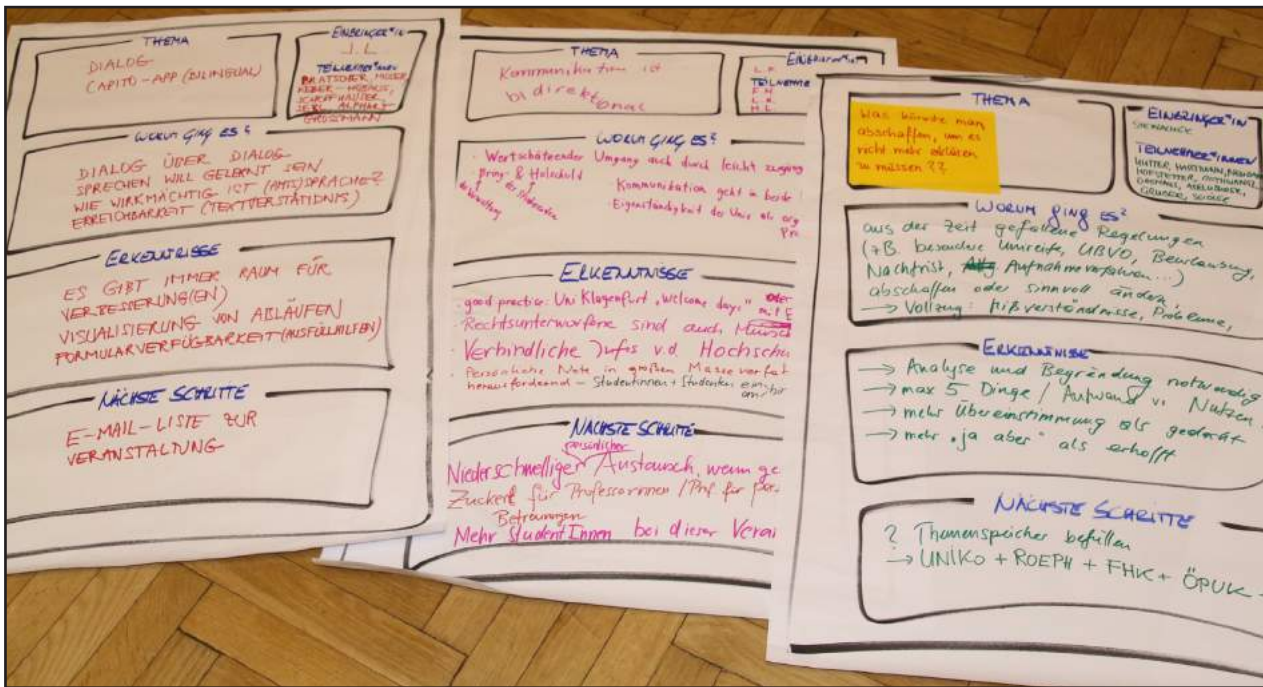 THEMA
DIALOG
CAPITO-APP (BILINGUAL)
EINBRINGER*IN
J. L.
TEILNEHMER*INNEN
GROSSMANN
WORUM GING ES?
DIALOG ÜBER DIALOG
SPRECHEN WILL GELERNT SEIN
WIE WIRKMÄCHTIG IST (AMTS)SPRACHE?
ERREICHBARKEIT (TEXTVERSTÄNDNIS)
ERKENNTNISSE
ES GIBT IMMER RAUM FÜR
VERBESSERUNG(EN)
VISUALISIERUNG VON ABLÄUFEN
FORMULARVERFÜGBARKEIT (AUSFÜLLHILFEN)
NÄCHSTE SCHRITTE
E-MAIL-LISTE ZUR
VERANSTALTUNG
THEMA
Kommunikation ist
bidirektional
EINBRINGER*IN
L. F.
TEILNEHMER
WORUM GING ES?
· Wertschätzender Umgang auch durch leicht zugäng
· Bring- & Holschuld
der Verwaltung
der Studierenden
· Kommunikation geht in beide
· Eigenständigkeit der Unis als org
ERKENNTNISSE
· good practice: Uni Klagenfurt "welcome days" oder
· Rechtsunterworfene sind auch Mensch
· Verbindliche Infos v.d. Hochschu
· Persönliche Note in großen Masseverfah
herausfordernd – Studentinnen + Studenten
NÄCHSTE SCHRITTE
persönlicher
Niederschwelliger Austausch, wenn ge
Zuckerl für Professorinnen / Prof. für
Betreuungen
Mehr StudentInnen bei dieser Veran
THEMA
Was könnte man
abschaffen, um es
nicht mehr erklären
zu müssen??
EINBRINGER*IN
TEILNEHMER*INNEN
WORUM GING ES?
aus der Zeit gefallene Regelungen
(z.B. besondere Unireife, UBVO, Beurlaubung,
Nachfrist, Aufnahmeverfahren...)
abschaffen oder sinnvoll ändern,
→ Vollzug: Mißverständnisse, Probleme,
ERKENNTNISSE
→ Analyse und Begründung notwendig
→ max 5 Dinge / Aufwand vs Nutzen
→ mehr Übereinstimmung als gedacht
→ mehr "ja aber" als erhofft
NÄCHSTE SCHRITTE
? Themenspeicher befüllen
→ UNIKO + ROEPH + FHK + ÖPUK